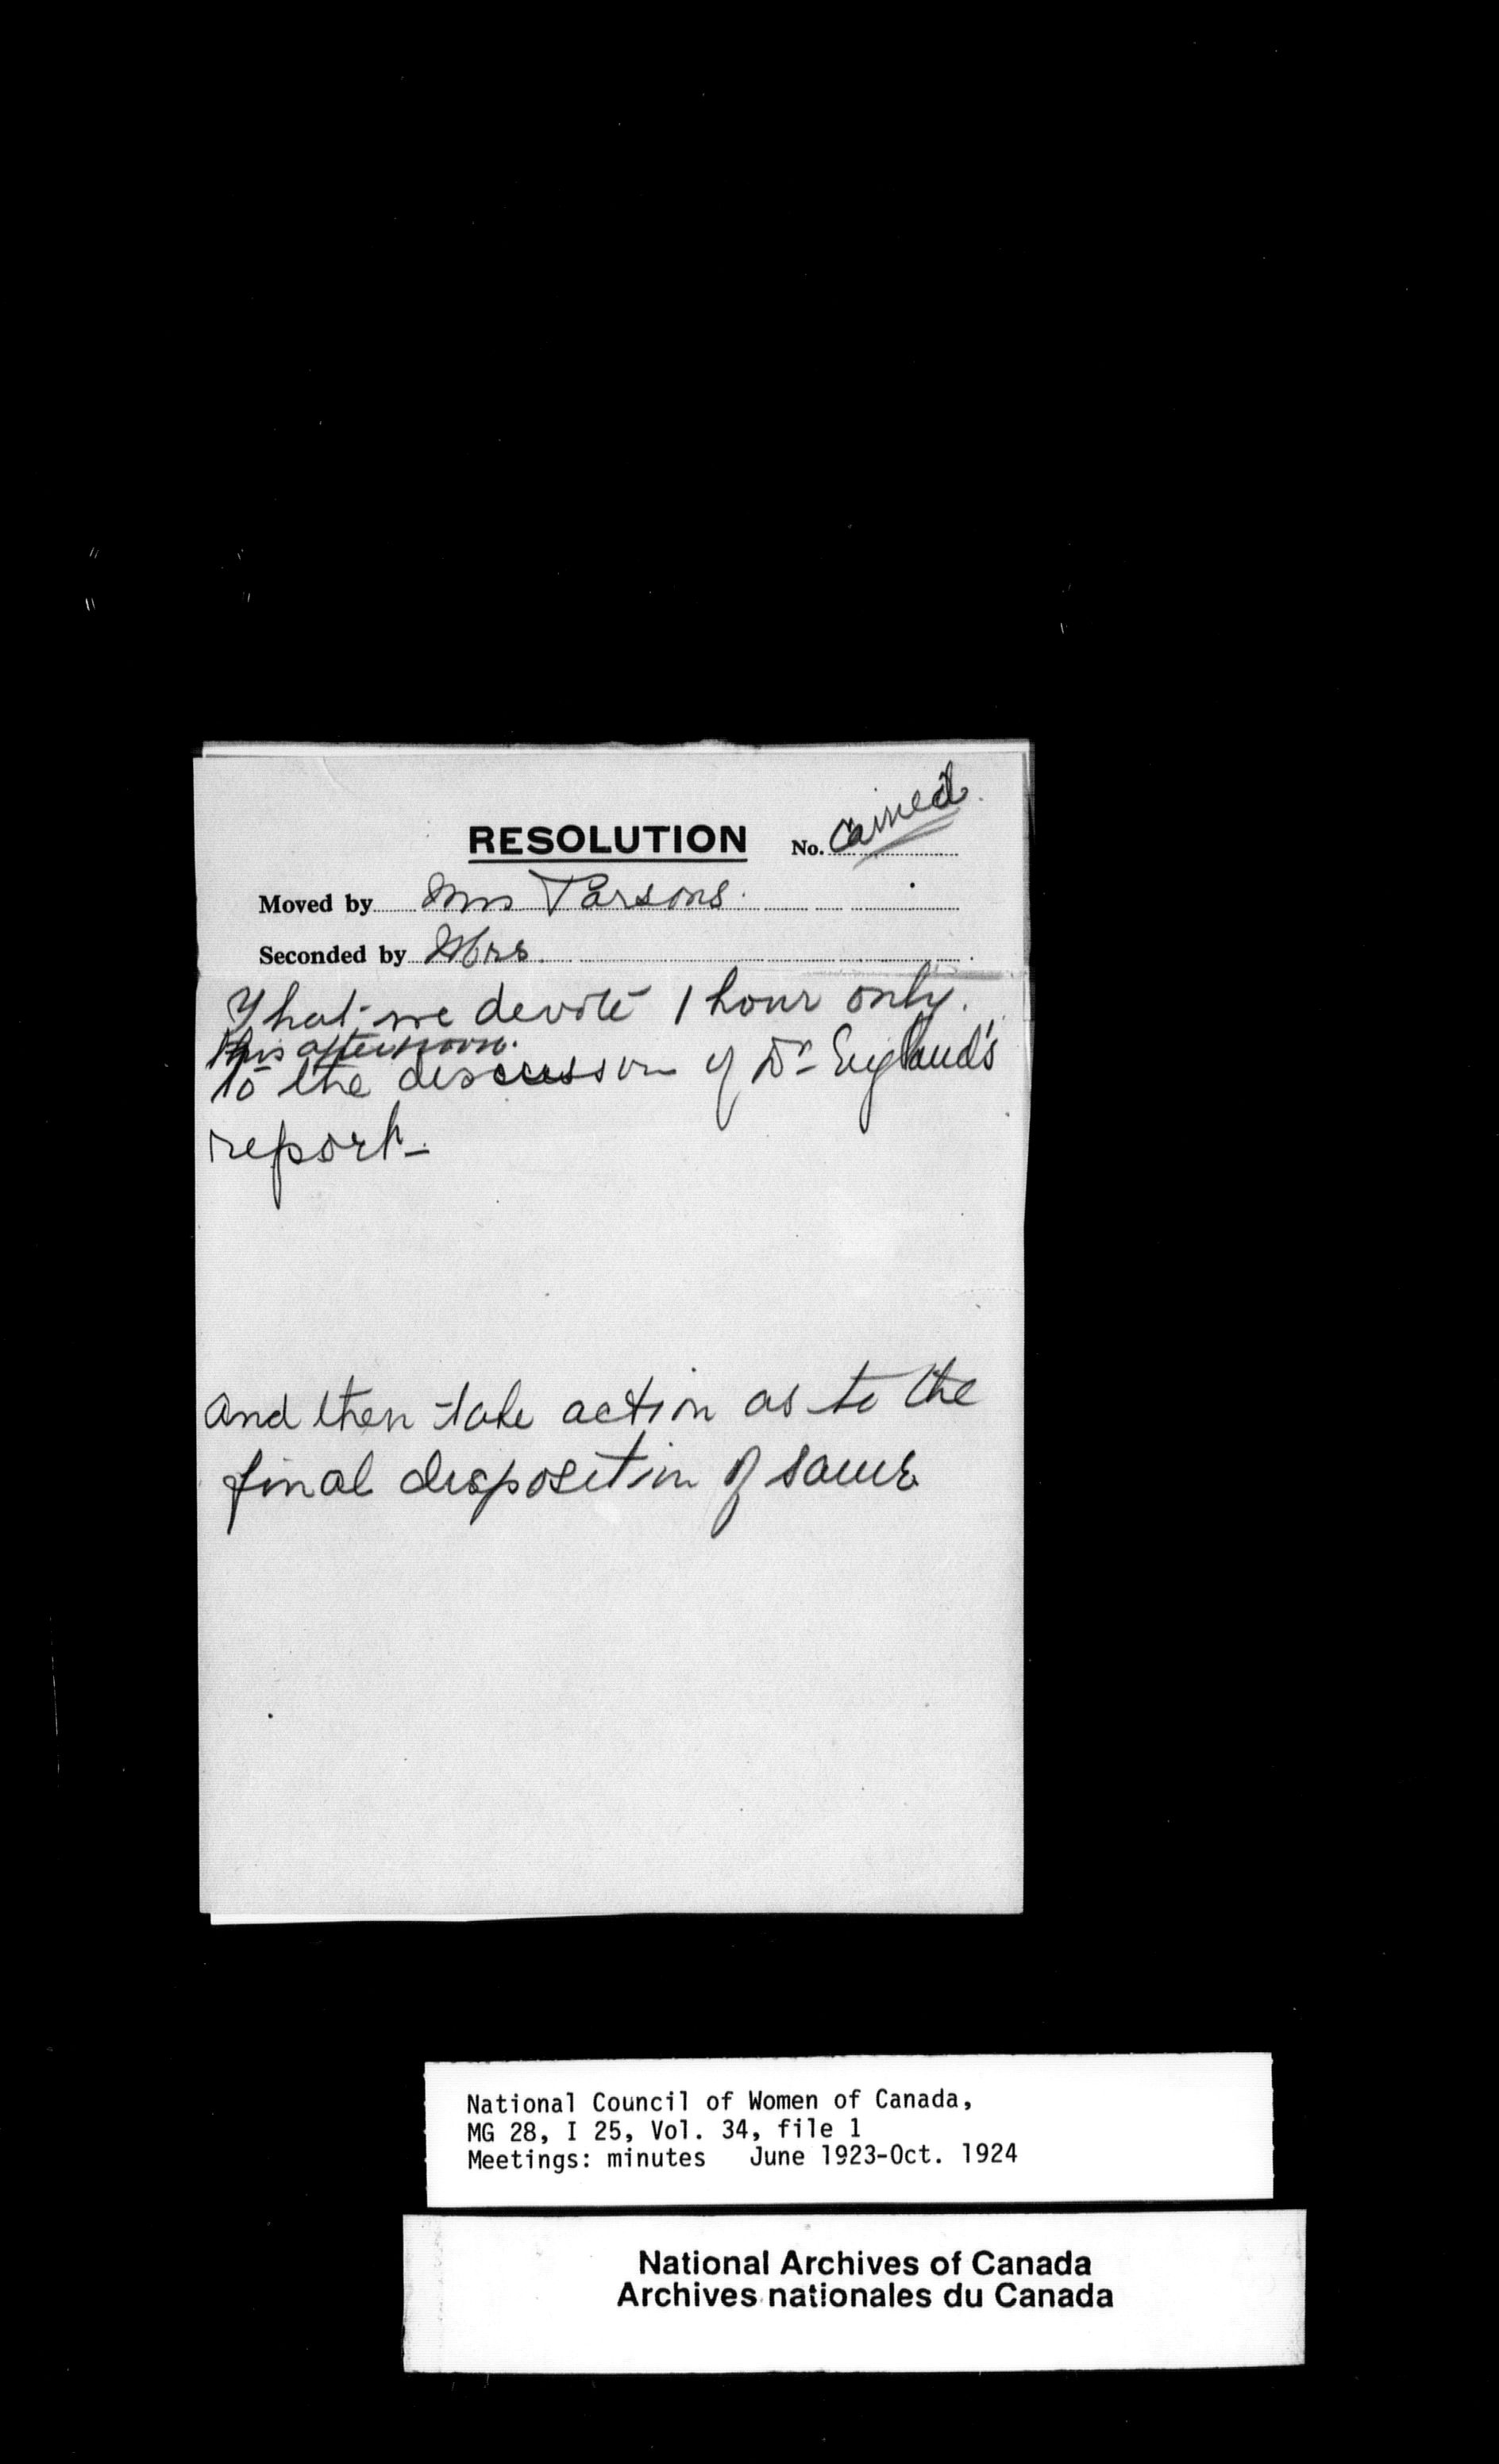 RESOLUTION No. Carried.
Moved by Mrs Parsons.
Seconded by Mrs.
That we devote 1 hour only.
this afternoon.
to the discussion of Dr England's
report-
and then take action as to the
final disposition of same
National Council of Women of Canada,
MG 28, I 25, Vol. 34, file 1
Meetings: minutes June 1923-Oct. 1924
National Archives of Canada
Archives nationales du Canada